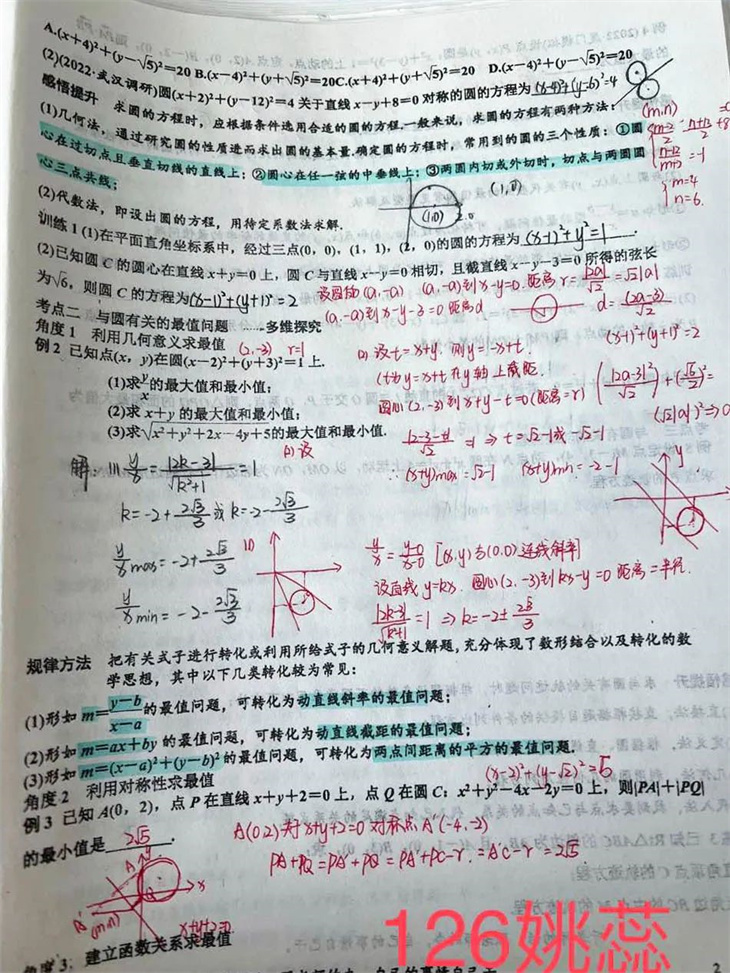 A.(x+4)²+(y−√5)²=20 B.(x−4)²+(y+√5)²=20C.(x+4)²+(y+√5)²=20 D.(x−4)²+(y−√5)²=20
(2)(2022·武汉调研)圆(x+2)²+(y−12)²=4关于直线x−y+8=0对称的圆的方程为(x-4)²+(y-6)²=4
感悟提升 求圆的方程时，应根据条件选用合适的圆的方程.一般来说，求圆的方程有两种方法：
(m,n)
(1)几何法，通过研究圆的性质进而求出圆的基本量.确定圆的方程时，常用到的圆的三个性质：①圆
心在过切点且垂直切线的直线上；②圆心在任一弦的中垂线上；③两圆内切或外切时，切点与两圆圆
心三点共线；
m=4
n=6.
(1,0)
(2)代数法，即设出圆的方程，用待定系数法求解.
(1,0)
训练1 (1)在平面直角坐标系中，经过三点(0，0)，(1，1)，(2，0)的圆的方程为(x-1)²+y²=1
(2)已知圆C的圆心在直线x+y=0上，圆C与直线x−y=0相切，且截直线x−y−3=0所得的弦长
为√6，则圆C的方程为(x-1)²+(y+1)²=2
设圆心(a,-a) (a,-a)到x-y=0.距离r=|2a|/√2=√2|a|
(a,-a)到x-y-3=0距离d
d=|2a-3|/√2
考点二 与圆有关的最值问题 ……多维探究
(x-1)²+(y+1)²=2
角度1 利用几何意义求最值 (2,-3) r=1
例2 已知点(x，y)在圆(x−2)²+(y+3)²=1上.
(1)求y/x的最大值和最小值；
(2)求x+y的最大值和最小值；
(3)求√x²+y²+2x−4y+5的最大值和最小值.
设t=x+y. 则y=-x+t.
t为y=-x+t在y轴上截距.
圆心(2,-3)到x+y-t=0(距离=r)
|2-3-t|/√2=1⇒t=√2-1或-√2-1
∴(x+y)max=√2-1 (x+y)min=-√2-1
解：(1) y/x=|2k-3|/√k²+1=1
k=-2+2√3/3或k=-2-2√3/3
y/x max=-2+2√3/3
y/x min=-2-2√3/3
y/x=y-0/x-0 [(x,y)与(0,0)连线斜率]
设直线y=kx. 圆心(2,-3)到kx-y=0距离=半径.
|2k+3|/√k²+1=1⇒k=-2±2√3/3
规律方法 把有关式子进行转化或利用所给式子的几何意义解题,充分体现了数形结合以及转化的数
学思想，其中以下几类转化较为常见：
(1)形如m=y−b/x−a的最值问题，可转化为动直线斜率的最值问题；
(2)形如m=ax+by的最值问题，可转化为动直线截距的最值问题；
(3)形如m=(x−a)²+(y−b)²的最值问题，可转化为两点间距离的平方的最值问题.
角度2 利用对称性求最值
(x-2)²+(y-√2)²=5
例3 已知A(0，2)，点P在直线x+y+2=0上，点Q在圆C：x²+y²−4x−2y=0上，则|PA|+|PQ|
的最小值是2√5.
A(0,2)关于x+y+2=0对称点A'(-4,-2)
PA+PQ=PA'+PQ=PA'+PC-r.=A'C-r=2√5.
(m,n)
x+y+2=0
126姚蕊
角度3：建立函数关系求最值
2